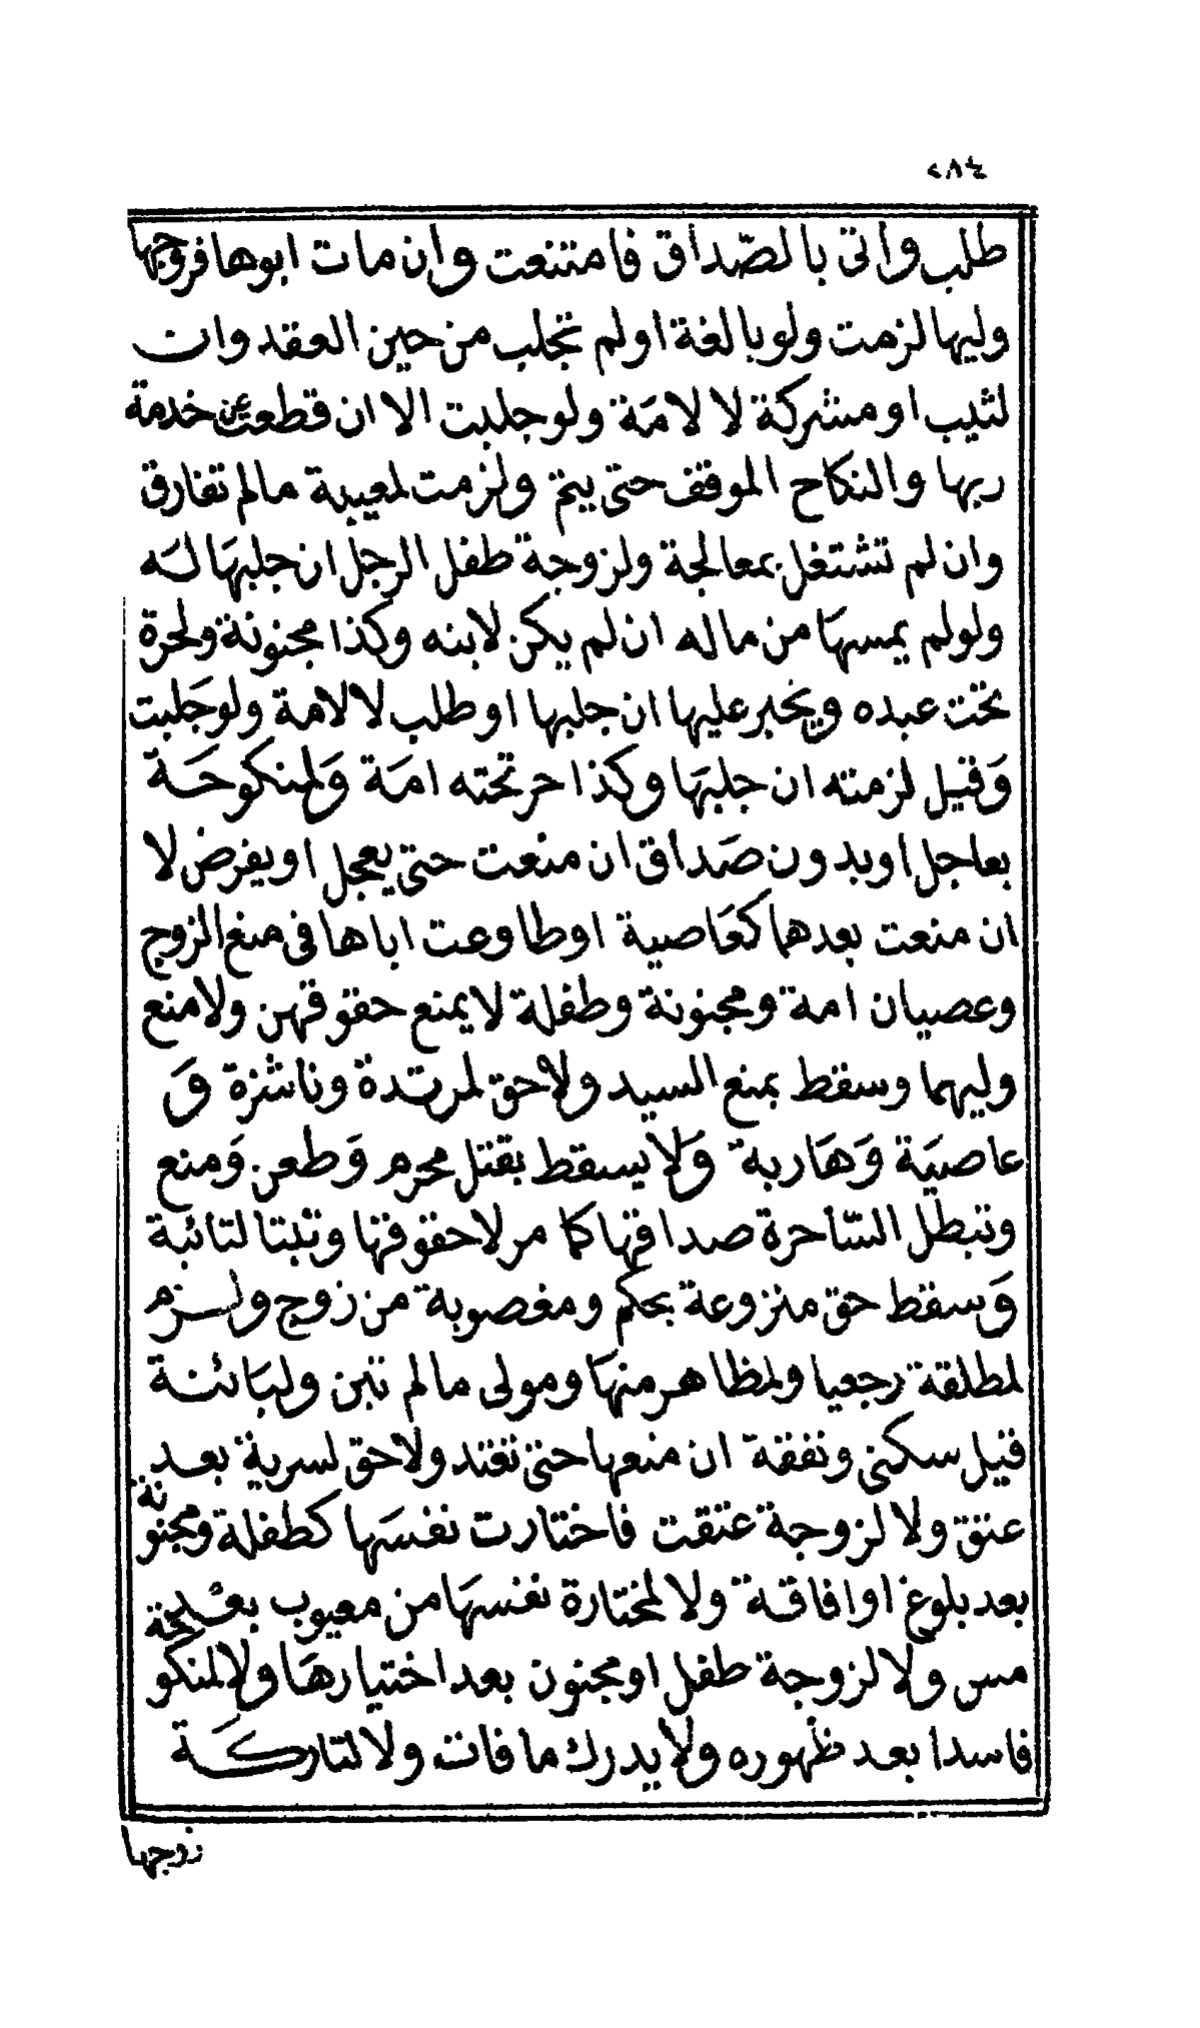 ٢٨٤
طلب وأتى بالصّداق فامتنعت وإن مات ابوها فزوجها
وليها لزمت ولو بالغة او لم تجلب من حين العقد وان
لثيب او مشركة لا لامَة ولو جلبت الا ان قطعت عن خدمة
ربها والنكاح الموقف حتى يتم ولزمت لمعيبة مالم تفارق
وان لم تشتغل بمعالجة ولزوجة طفل الرجل ان جلبهَا لـه
ولو لم يمسهَا من ماله ان لم يكن لابنه وكذا مجنونة ولحرة
تحت عبده ويخبر عليها ان جلبها او طلب لا لامة ولو جَلبت
وَقيل لزمته ان جلبهَا وكذا حر تحته امَة وَلمنكوحَـة
بعاجل او بدون صَداق ان منعت حتى يعجل او يفرض لا
ان منعت بعدهما كعَاصية او طاوعت اباها في منع الزوج
وعصيان امة ومجنونة وطفلة لا يمنع حقوقهن ولا منع
وليهما وسقط بمنع السيد ولا حق لمرتدة وناشزة وَ
عاصيَة وَهَاربة وَلا يسقط بقتل محرم وَطعن وَمنع
وتبطل السّاحرة صداقها كما مر لا حقوقها وثبتا لتائبة
وَسقط حق منزوعة بحكم ومغصوبة من زوج ولـزم
لمطلقة رجعيا ولمظاهر منهَا ومولى مالم تبن ولبَائنـة
قيل سكنى ونفقة ان منعها حتى تعتد ولا حق لسرية بعـد
عتق ولا لزوجة عتقت فاختارت نفسَها كطفلة ومجنونة
بعد بلوغ او افاقة ولا لمختارة نفسهَا من معيوب بعـد
مس ولا لزوجة طفل او مجنون بعد اختيارهَا ولا لمنكوحة
فاسدا بعد ظهوره ولا يدرك ما فات ولا لتاركـَة
زوجها